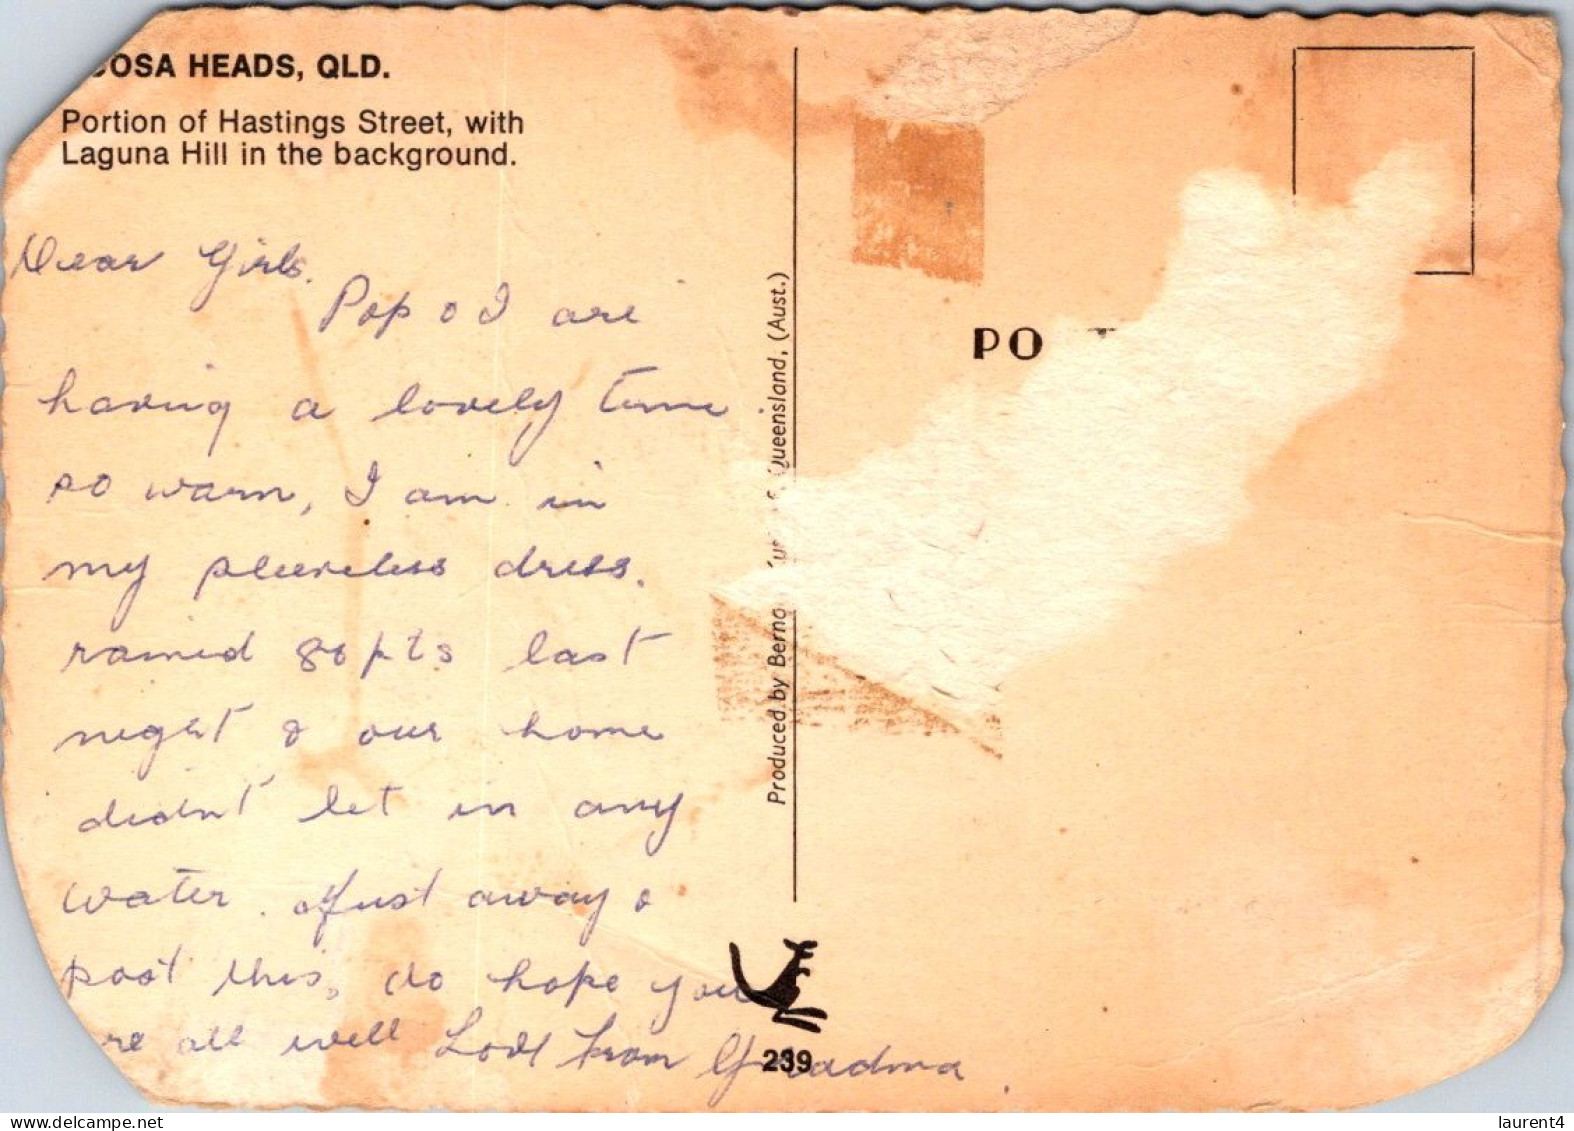 OOSA HEADS, QLD.
Portion of Hastings Street, with
Laguna Hill in the background.
Dear Girls.
Pop & I are
having a lovely time
so warm, I am in
my sleeveless dress.
rained 80 pts last
night & our home
didn't let in any
water. Just away &
post this, do hope you
re all well Love from Grandma.
PO
Produced by Queensland, (Aust.)
239
delcampe.net
laurent4